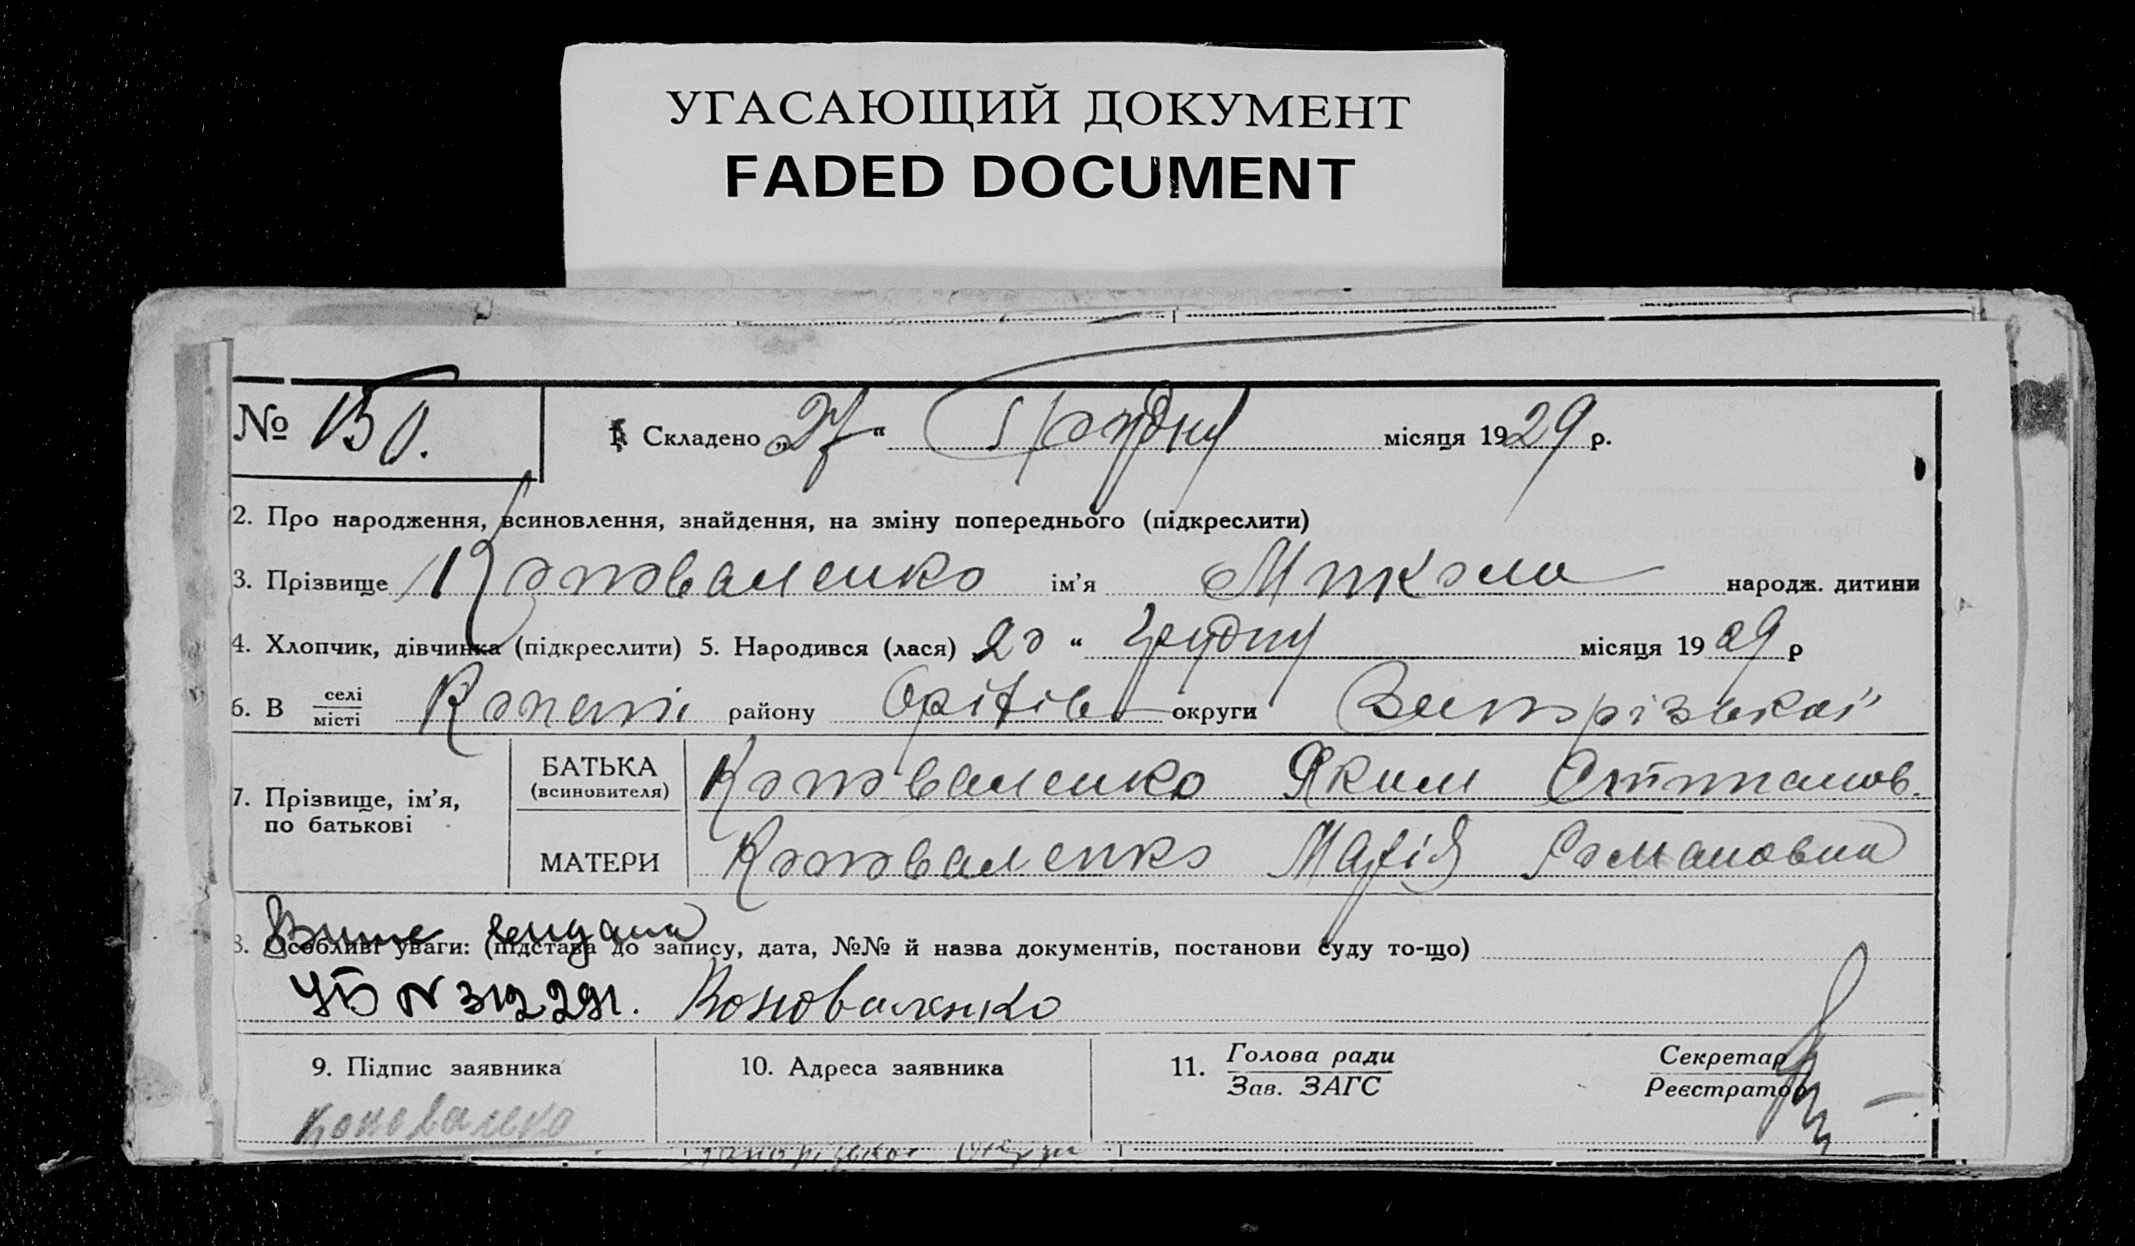 УГАСАЮЩИЙ ДОКУМЕНТ
FADED DOCUMENT
№ 150. 1. Складено „27“ Грудня місяця 1929 р.
2. Про народження, всиновлення, знайдення, на зміну попереднього (підкреслити)
3. Прізвище Коноваленко ім'я Микола народж. дитини
4. Хлопчик, дівчинка (підкреслити) 5. Народився (лася) 20 “ Грудня місяця 1929 р
6. В селі місті Копані району Оріхів округи Запорізької
7. Прізвище, ім'я, по батькові
БАТЬКА (всиновителя) Коноваленко Яким Степанов.
МАТЕРИ Коноваленко Марія Романовна
8. Особливі уваги: (підстава до запису, дата, №№ й назва документів, постанови суду то-що)
УБ N 312291. Коноваленко
9. Підпис заявника 10. Адреса заявника 11. Голова ради Зав. ЗАГС Секретар Реєстратор
Коновалєко